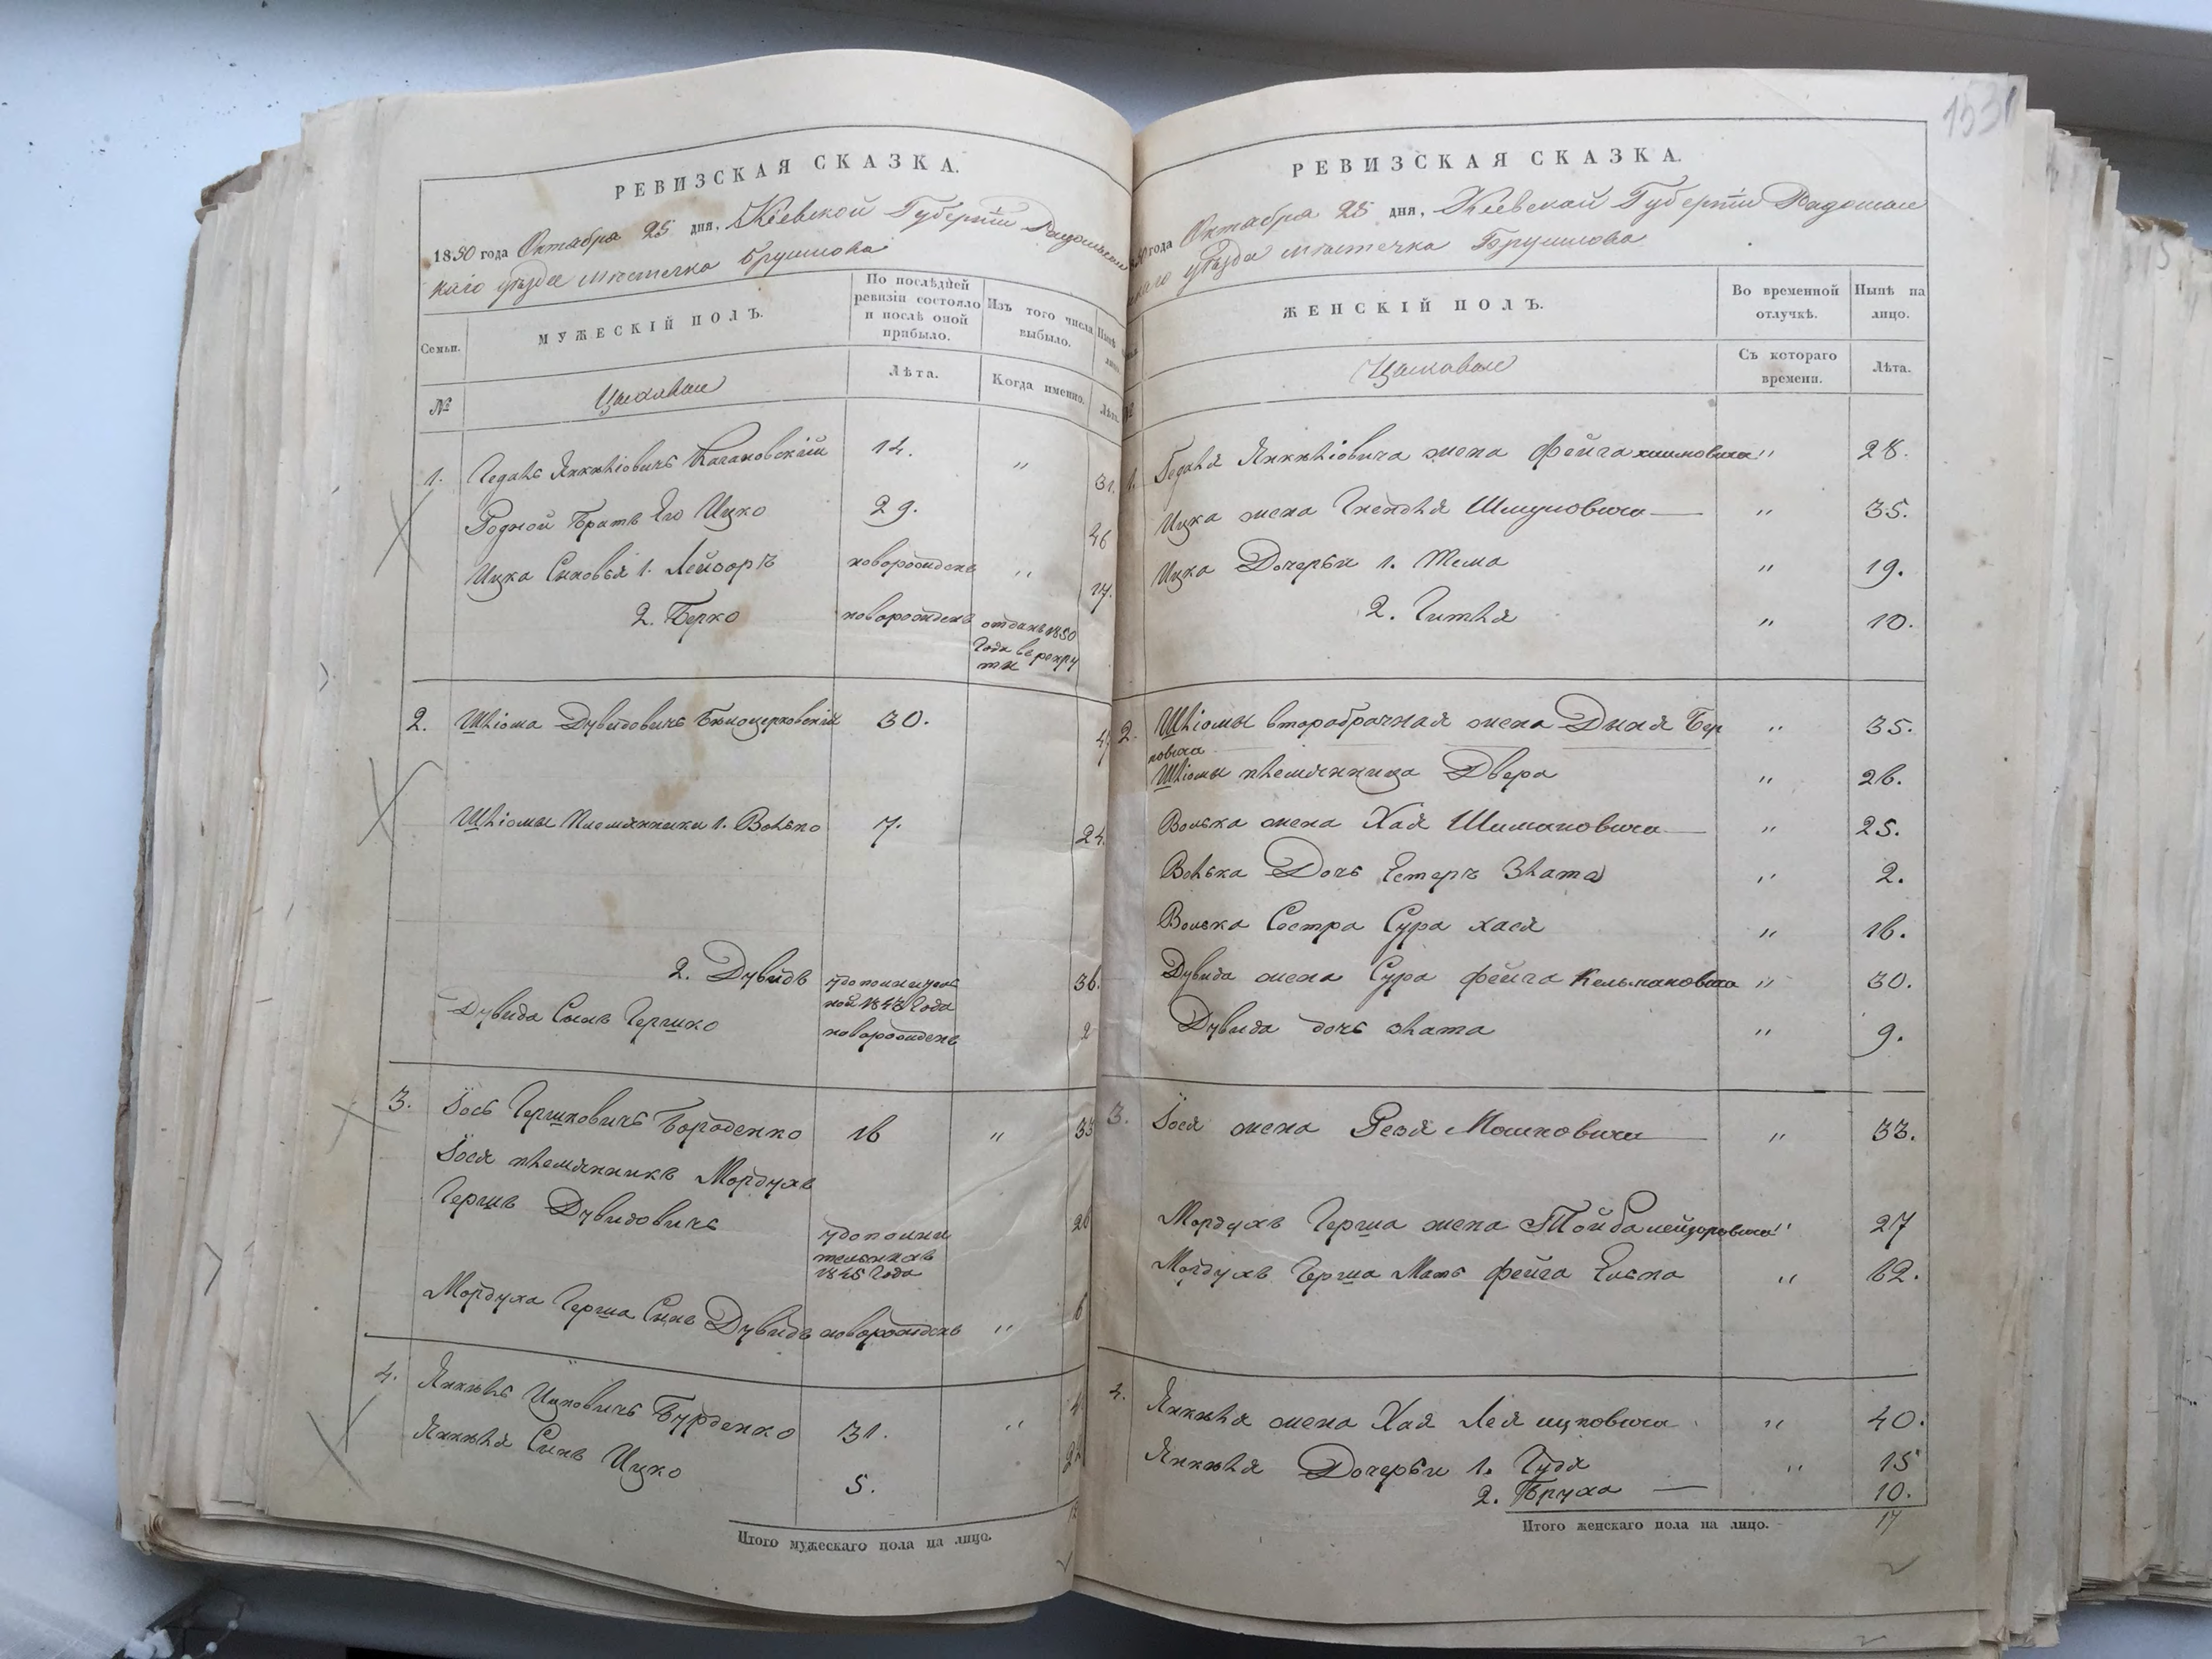 РЕВИЗСКАЯ СКАЗКА.
1850 года Октября 25 дня, Кіевской Губерніи Радомысль
скаго уѣзда мѣстечка Брусилова
Семьи.
МУЖЕСКІЙ ПОЛЪ.
По послѣдней ревизіи состояло и послѣ оной прибыло.
Изъ того числа выбыло.
№
Лѣта.
Когда именно.
Лѣта.
1. Гедаль Янкелiовичь Кагановскiй 14. " 31.
Родной Братъ Его Ицко 29. 46
Ицка Сыновья 1. Лейзоръ новорожденъ " 17.
2. Берко новорожденъ отданъ 1850
Года в рекру
ты
2. Шліома Дувидовичь Бѣлоцерковскій 30. 47
Шліомы Племянники 1. Волько 7. 24.
2. Дувидъ
1848 Года 36.
Дувида Сынъ Гершко новорожденъ 2
3. Іось Гершковичь Бороденко 16 " 33
Іося племянникъ Мордухъ
Гершъ Дувидовичь 26
1845 Года
Мордуха Герша Сынъ Дувидъ новорожденъ " 6
4. Янкель Ицковичь Бурденко 31. "
Янкеля Сынъ Ицко 5.
Итого мужескаго пола на лицо.
РЕВИЗСКАЯ СКАЗКА.
года Октября 25 дня, Кіевской Губерніи Радомысль
скаго уѣзда мѣстечка Брусилова
ЖЕНСКІЙ ПОЛЪ.
Во временной отлучкѣ.
Нынѣ на лицо.
Съ котораго времени.
Лѣта.
1. Гедаля Янкелiовича жена Фейга " 28.
Ицка жена Гнендля Шмуловича " 35.
Ицка Дочерьи 1. Тема " 19.
2. Гитля " 10.
2. Шліомы второбрачная жена Двыня Бер
ковича " 35.
Шліомы племянница Двера " 26.
Волька жена Хая Шимановича " 25.
Волька Дочь Естеръ Злата " 2.
Волька Сестра Сура хася " 16.
Дувида жена Сура фейга Кельмановича " 30.
Дувида дочь злата " 9.
3. Іося жена Рейзя Мошковича " 33.
Мордухъ Герша жена Тойба лейзоровича " 27
Мордухъ Герша Мать фейга Елька " 62.
4. Янкеля жена Хая Лея ицковича " 40.
Янкеля Дочерьи 1. Гудя " 15
2. Бруха 10.
Итого женскаго пола на лицо. 17